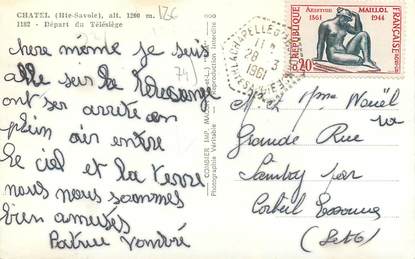 CHATEL (Hte-Savoie), alt. 1200 m.
1182 - Départ du Télésiège
126
74
chere mémé je suis
allé sur le télésiège
ont ser arrêté en
plein air entre
le ciel et la terre
nous nous sommes
bien amusés
Patrice
COMBIER IMP. MAC
Photographie Véritable
Reproduction Interdite
LA CHAPELLE
11
28 - 3
1961
ARISTIDE MAILLOL
1861 1944
REPUBLIQUE FRANÇAISE
POSTES
0,20
M et Mme
Grande Rue
par
Corbeil Essonnes
(S et O)